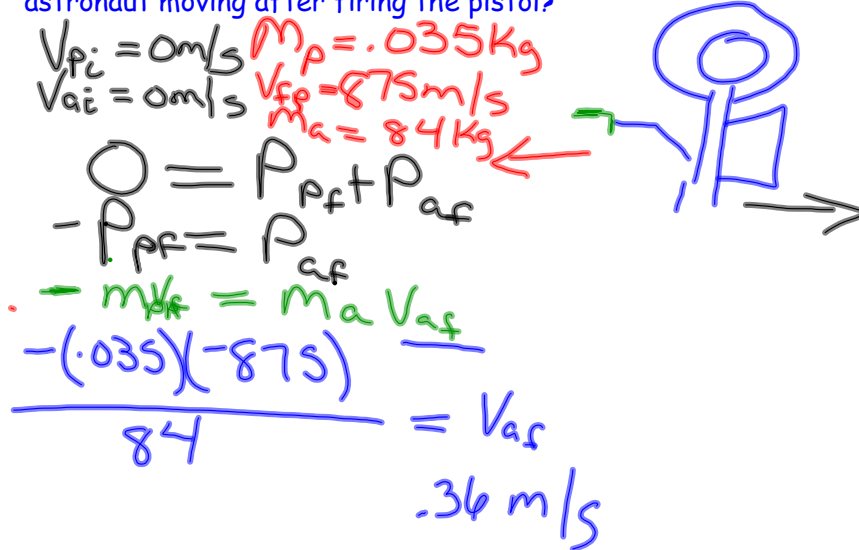 astronaut moving after firing the pistol?
Vpi = 0m/s Mp = .035Kg
Vai = 0m/s Vfp = 875m/s
ma = 84Kg
0 = Ppf + Paf
- Ppf = Paf
= ma Vaf
-(.035)(-875)
84
= Vaf
.36 m/s